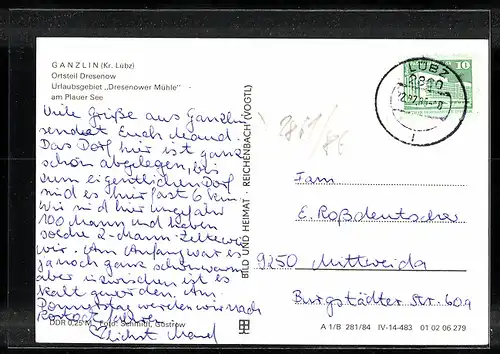 GANZLIN (Kr. Lübz)
Ortsteil Dresenow
Urlaubsgebiet „Dresenower Mühle"
am Plauer See
Viele Grüße aus Ganzlin
sendet Euch Maud.
Das Dorf hier ist ganz
schön abgelegen, bis
zum eigentlichen Dorf
sind es hier fast 6 km.
Wir sind hier ungefähr
100 Mann und haben
solche 2-Mann-Zelte
wir. Am Anfang war es
ja noch ganz schön warm
aber inzwischen ist es
kalt geworden. Am
Donnerstag werden wir nach
Rostock fahren
Eichst Maud
DDR 0,25 M Foto: Schmidt, Güstrow
BILD UND HEIMAT · REICHENBACH (VOGTL)
LÜBZ
2860
10
Fam
E. Roßdeutscher
9250 Mittweida
Burgstädter Str. 60a
A 1/B 281/84 IV-14-483 01 02 06 279